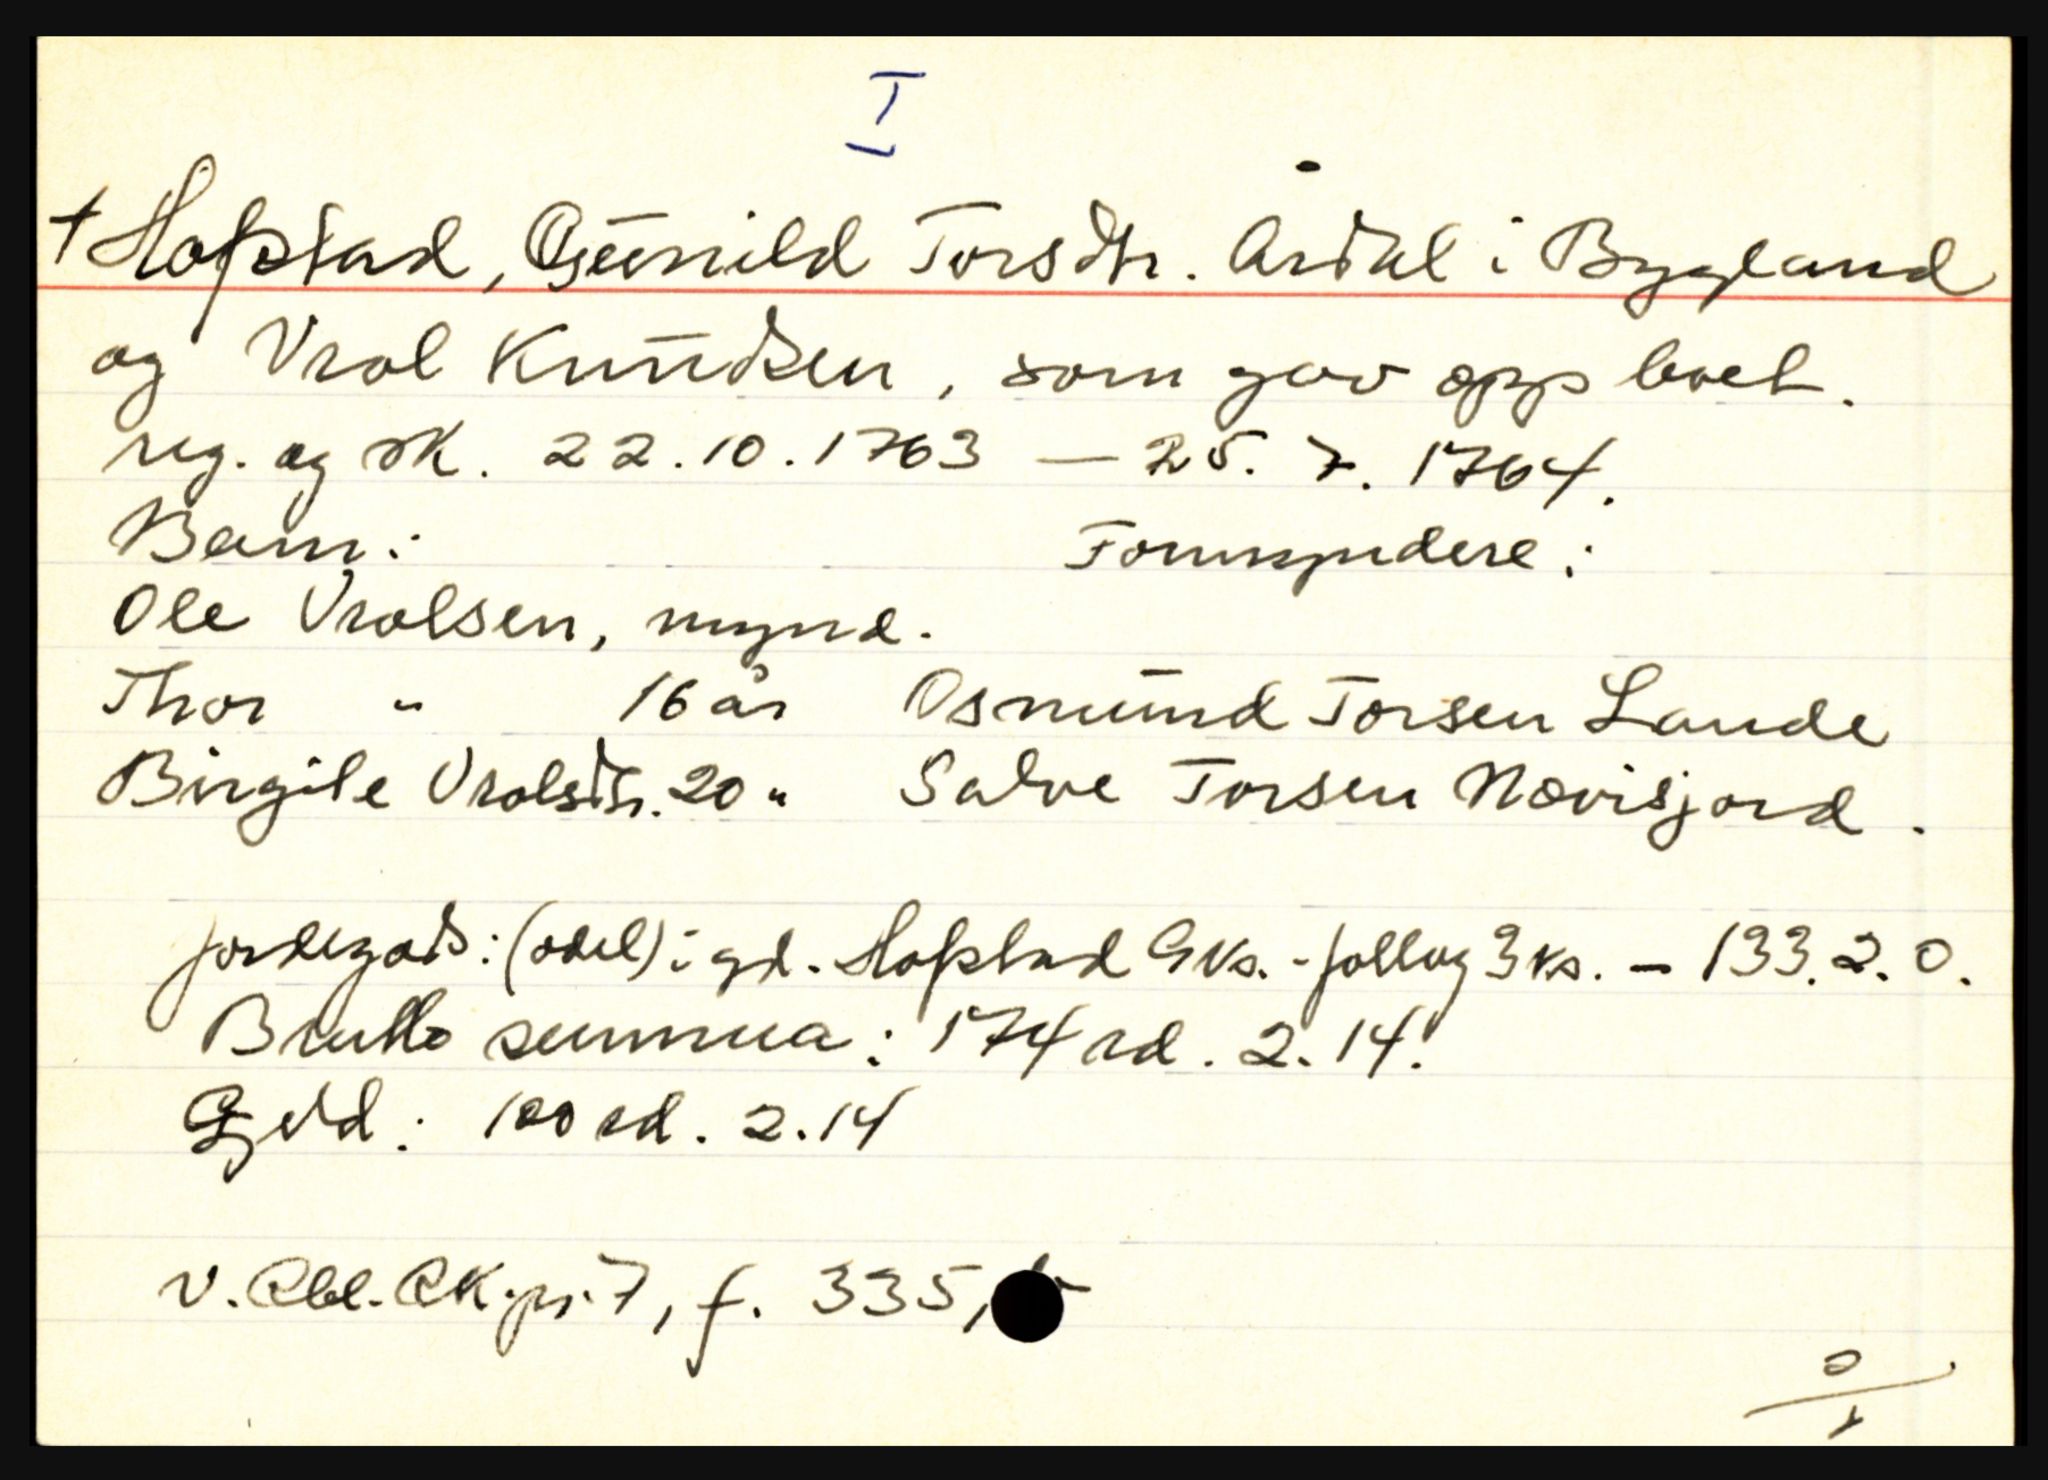 I
+ Hofstad, Gunild Torsdtr. Årdal i Bygland
og Vrol Knudsen, som gav opp boet.
reg. og sk. 22.10.1763 — 25. 7. 1764.
Barn: Formyndere:
Ole Vrolsen, mynd.
Thor " 16 år Osmund Torsen Lande
Birgite Vrolsdtr. 20 " Salve Torsen Nævisjord.
jordegods: (odel) i gd. Hofstad 9 ks. - follog 3 ks. - 133.2.0.
Brutto summa: 174 rd. 2. 14.
Gjeld: 100 rd. 2.14
v. Rbl. Sk.pr. 7, f. 335,